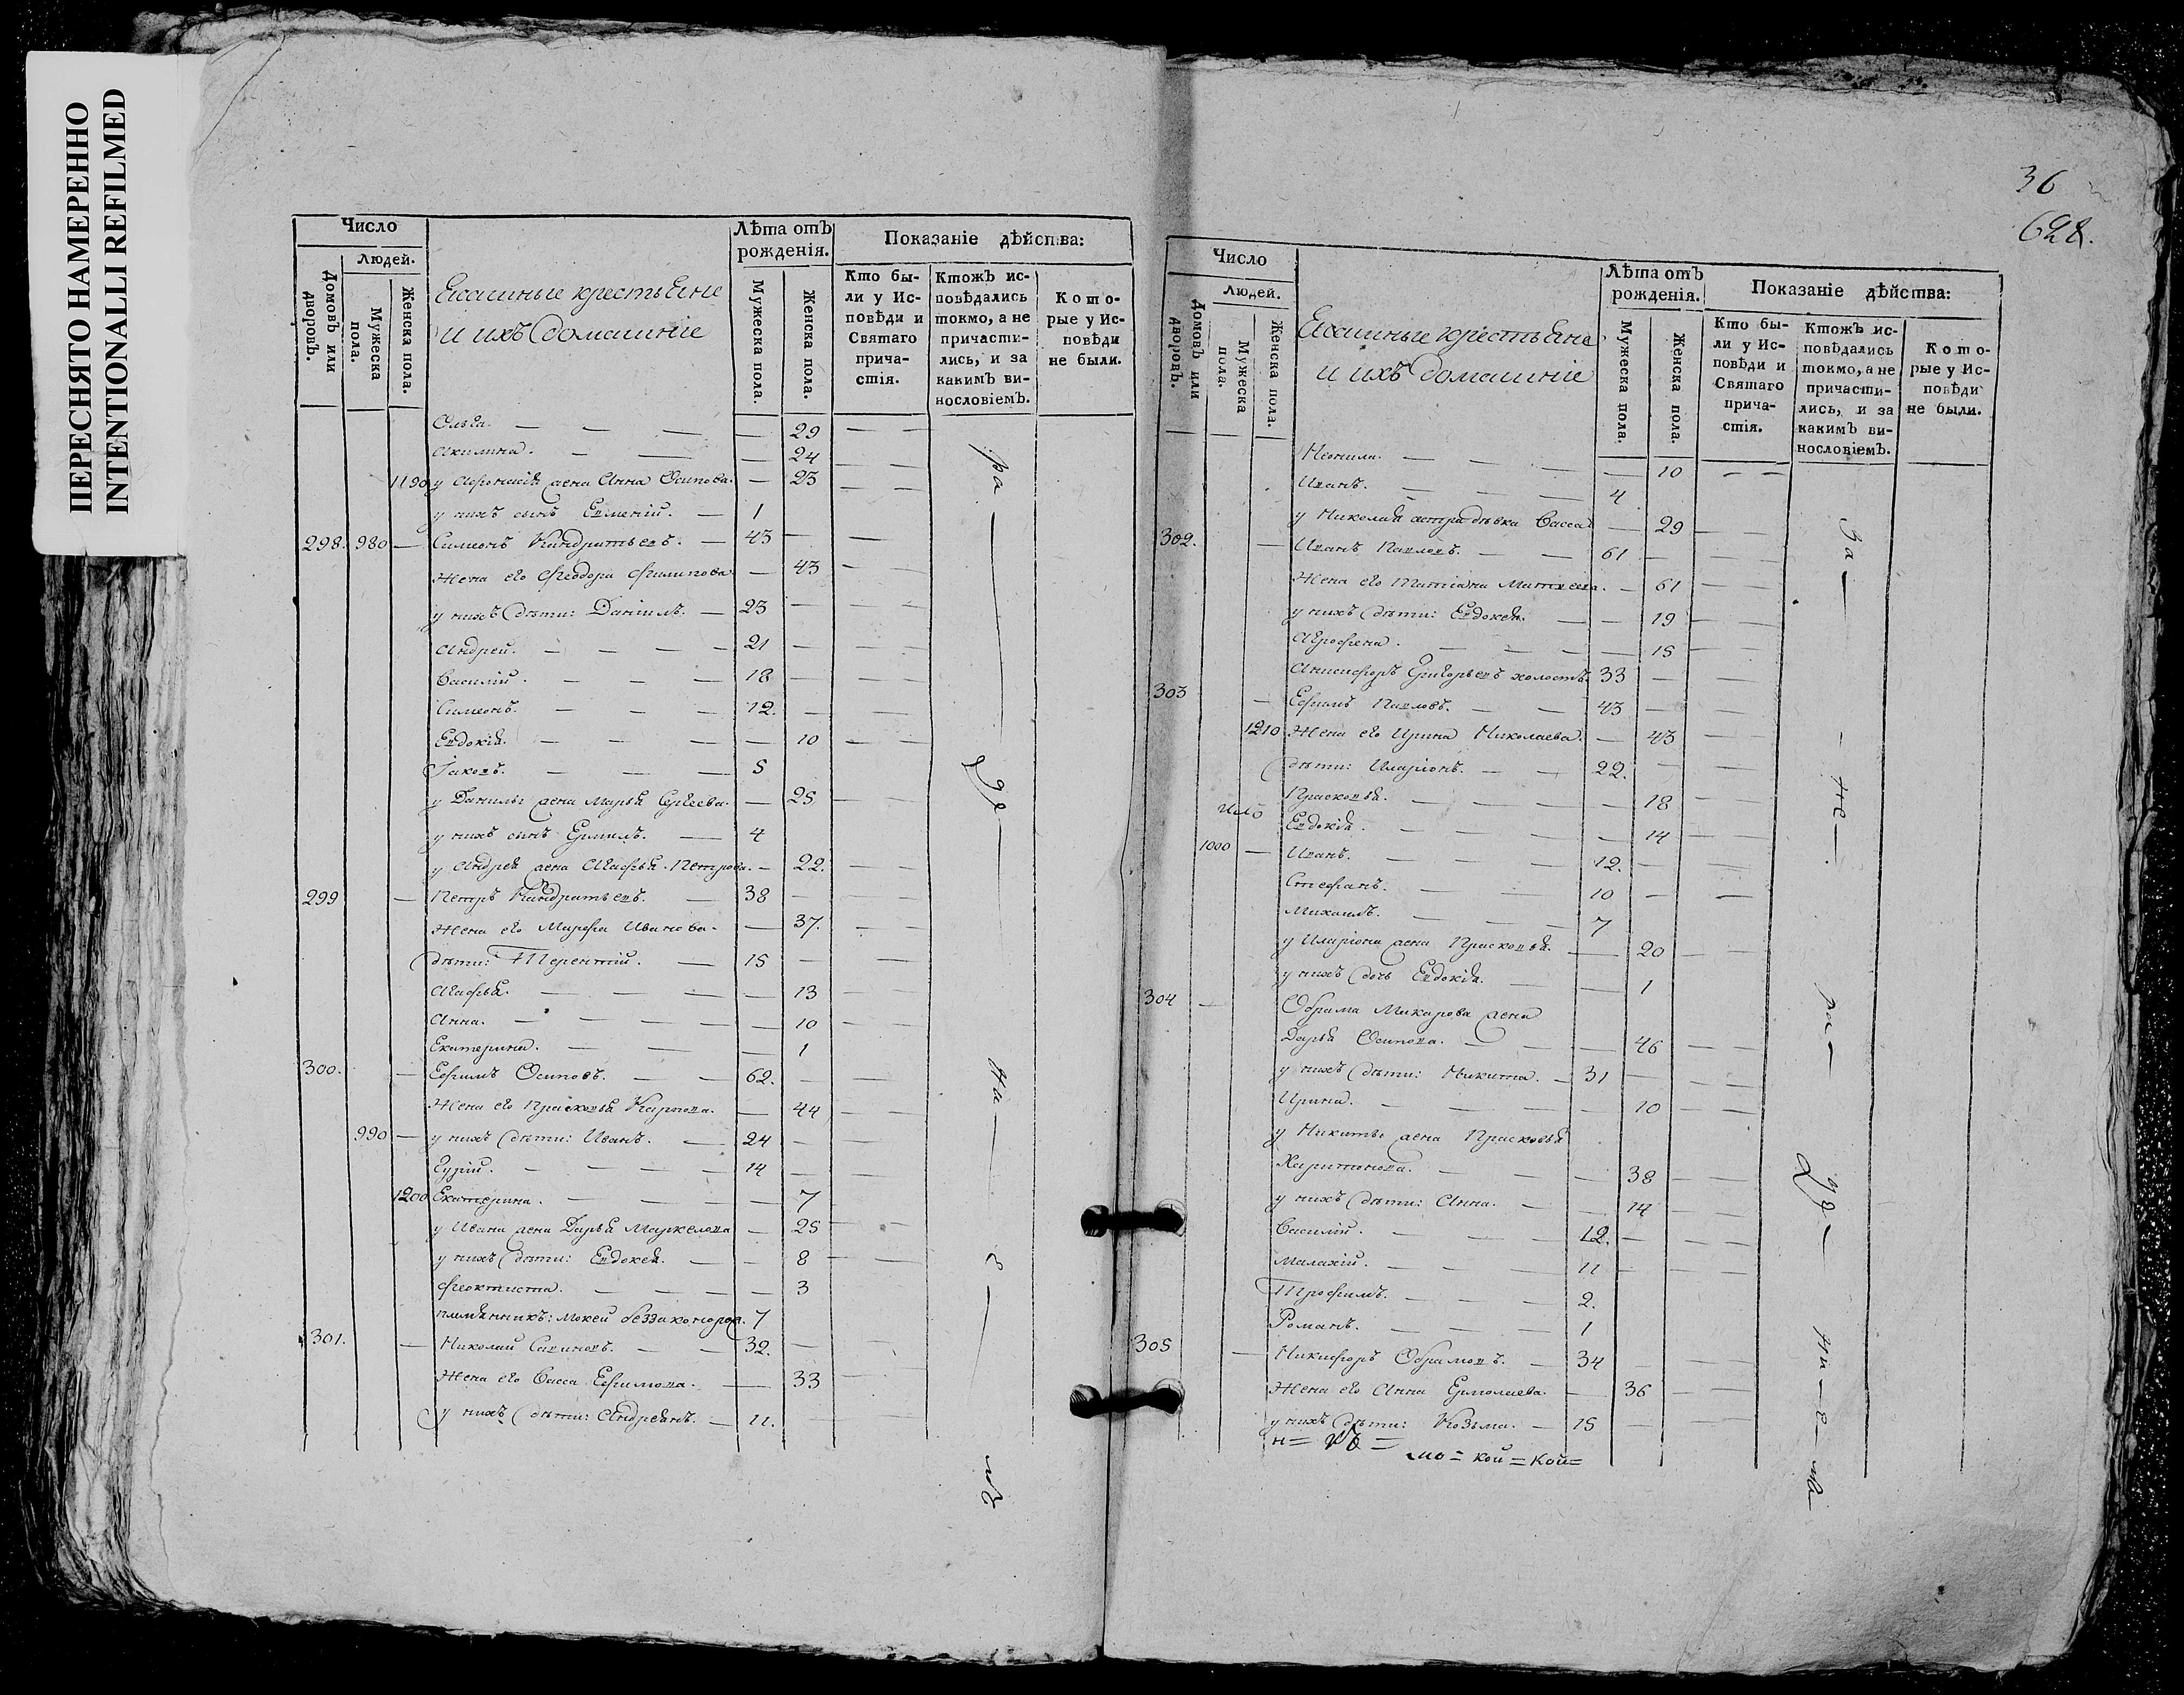 ПЕРЕСНЯТО НАМЕРЕННО
INTENTIONALLI REFILMED
Число
Людей.
Домовъ или дворовъ.
Мужеска пола.
Женска пола.
крестьяне
и ихъ домашнie
Лѣта отъ рожденiя.
Мужеска пола.
Женска пола.
Показанiе дѣйства:
Кто были у Исповѣди и Святаго причастiя.
Ктожъ исповѣдались токмо, а не причастились, и за какимъ винословiемъ.
Которые у Исповѣди не были.
Ольга. — 29
Акилина. — 24
1190 у жена Анна Осипова. — 23
у нихъ сынъ Евменiй. — 1
298. 980 — Симеонъ Кандратьевъ. — 43
Жена его Феодора Филипова — 43
у нихъ дѣти: Данiилъ. — 23
Андрей. — 21
Василiй. — 18
Симеонъ. — 12.
Евдокiя. — 10
Iаковъ. — 5
у Данилы жена Марья Сергеева. — 25
у нихъ сынъ Ермилъ. — 4
у Андрея жена Агафья Петрова. — 22.
299 — Петръ Кандратьевъ. — 38
Жена его Марфа Иванова. — 37.
дѣти: Терентiй. — 15
Агафья. — 13
Анна. — 10
Екатерина. — 1
300. — Ефимъ Осиповъ. — 62.
Жена его Прасковья Карпова. — 44
990 — у нихъ дѣти: Иванъ. — 24
Гурiй. — 14
1200 Екатерина. — 7
у Ивана жена Дарья Маркелова — 25
у нихъ дѣти: Евдокея. — 8
Феоктиста. — 3
племянникъ: Мокей беззаконорож. 7
301. — Николай Савиновъ. — 32.
Жена его Васса Ефимова. — 33
у нихъ дѣти: Андреянъ. — 11.
36
628.
Число
Людей.
Домовъ или дворовъ.
Мужеска пола.
Женска пола.
крестьяне
и ихъ домашнie
Лѣта отъ рожденiя.
Мужеска пола.
Женска пола.
Показанiе дѣйства:
Кто были у Исповѣди и Святаго причастiя.
Ктожъ исповѣдались токмо, а не причастились, и за какимъ винословiемъ.
Которые у Исповѣди не были.
Неонила. — 10
Иванъ. — 4
у Николая сестра дѣвка Васса — 29
302. — Иванъ Павловъ. — 61
Жена его Татiана Матвеева. — 61
у нихъ дѣти: Евдокея. — 19
Агрофена. — 15
Анисифоръ Григорьевъ холостъ. 33
303 — Ефимъ Павловъ. — 43
1210 Жена его Ирина Николаева. — 43
дѣти: Иларiонъ. — 22.
Прасковья. — 18
Евдокiя. — 14
1000 — Иванъ. — 12.
Стефанъ. — 10
Михаилъ. — 7
у Иларiона жена Прасковья. — 20
у нихъ дочь Евдокiя. — 1
304 — Обрама Макарова жена
Дарья Осипова. — 46
у нихъ дѣти: Никита. — 31
Ирина. — 10
у Никиты жена Прасковья
Харитонова. — 38
у нихъ дѣти: Анна. — 14
Василiй. — 12.
Малахiй. — 11
Трофимъ. — 2.
Романъ. — 1
305 — Никифоръ Обрамовъ. — 34
Жена его Анна Ермолаева. — 36
у нихъ дѣти: Козьма. — 15
мо = кой = кой =